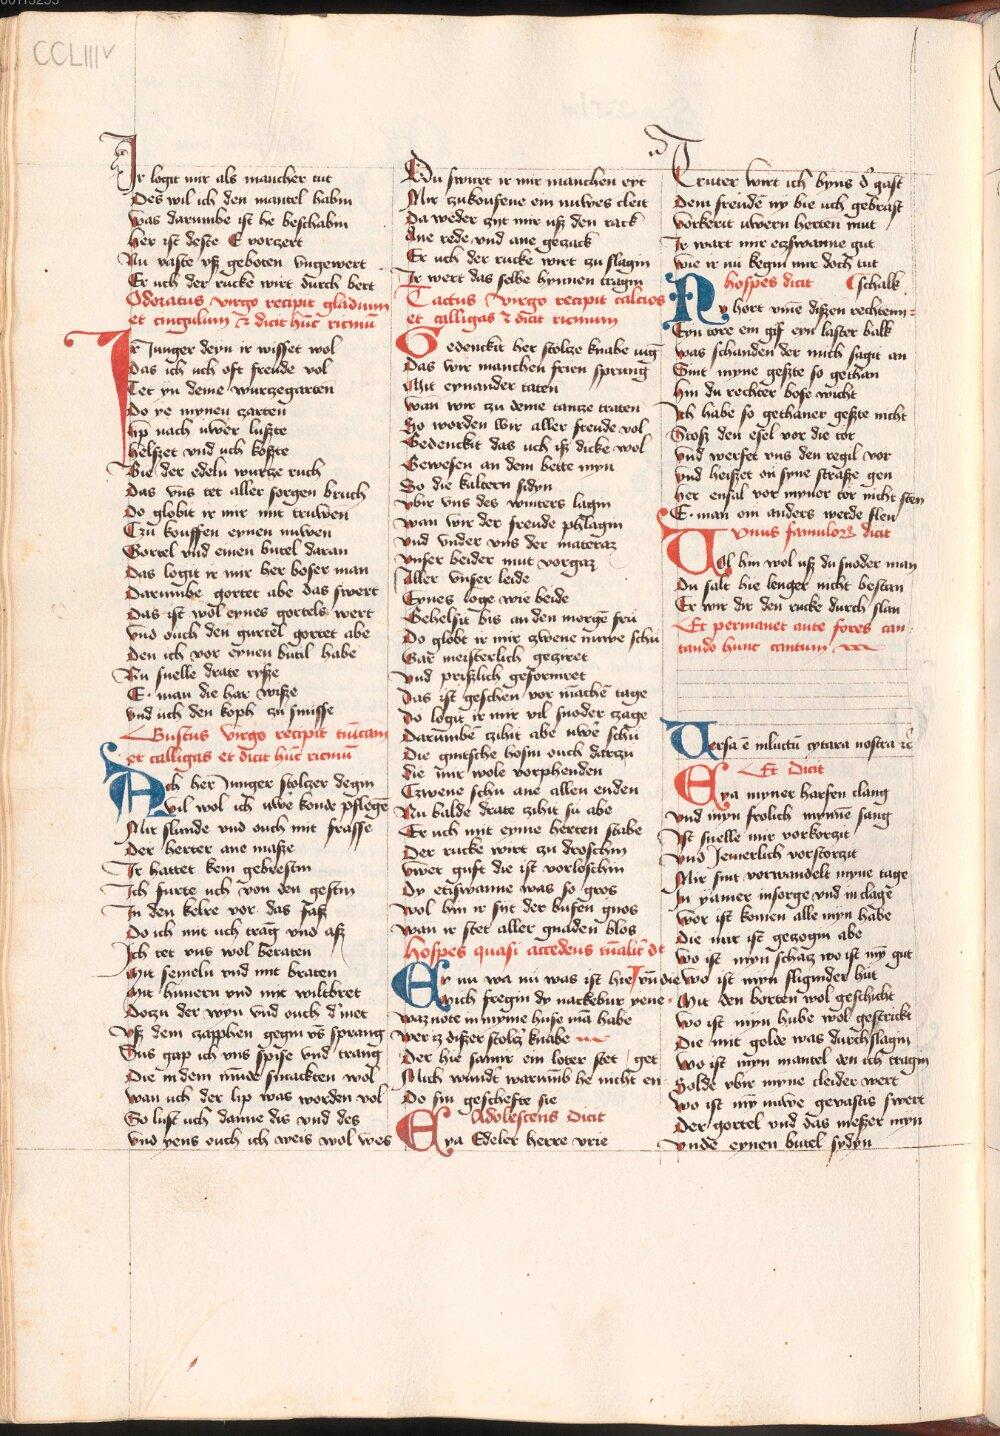 CCLIIIIv
Ir logit mir als mancher tut
Des wil ich den mantel habin
Was darumbe ist he beschabin
Her ist deste E vorzert
Nu vaste vff geboten vngewert
Er uch der rucke wirt durch bert
Odoratus virgo recipit gladium
et cingulum et dicit hūc ricmū
Ir Junger deyn ir wisset wol
Das ich uch oft freude vol
Tet yn deme wurzegarten
Do ye mynen zarten
Lip nach uwer luste
Helset vnd uch koste
Bie der edeln wurtze ruch
Das vns tet aller sorgen bruch
Do globit ir mir mit truwen
Czu kouffen eynen nuwen
Gortel vnd einen butel daran
Das logit ir mir her boser man
Darumbe gortet abe das swert
Das ist wol eynes gortels wert
Vnd ouch den gurtel gortet abe
Den ich vor eynen butil habe
Nu snelle drate ryße
E man die har wiße
Vnd uch den koph zu smisse
Gustus virgo recipit tunicam
et calligas et dicit hūc ricmū
Ach her Junger stolzer degin
Wil wol ich uwer konde pflegē
Mit slunde vnd ouch mit frasse
Der herter ane maße
Ir hattet kein gebrestin
Ich furte uch von den gestin
In den kelre vor das faß
Do ich mit uch trāg vnd aß
Ich tet vns wol beraten
Mit semeln vnd mit braten
Mit hunern vnd mit wiltbret
Doczu der wyn vnd ouch d' met
Vß dem czapphen gegin vns sprang
Sus gap ich vns spise vnd trang
Die in dem mūde smackten wol
Wan uch der lip was worden vol
So lust uch danne dis vnd des
Vnd yens ouch ich weis wol wes
Ddu swurt ir mir manchen eyt
Mir zukoufene ein nuwes cleit
Da weder zyt mir uß den rack
Ane rede vnd ane gezack
Er uch der rucke wirt zu slagin
Ir wert das selbe hynnen tragin
Tactus virgo recipit calcios
et calligas et dicit ricmum
Gedenckit her stolze knabe iūg
Das wir manchen frien sprung
Mit eynander taten
Wan wir zu deme tanze traten
So worden wir aller freude vol
Gedenckit das uch iß dicke wol
Gewesen an dem bette myn
So die kaltern sidyn
Vbir vns des winters lagin
Wan wir der freude phlagin
Vnd vnder vns der materaz
Vnser beider mut vorgaz
Aller vnser leide
Eynes loge wie beide
Gehelsit bis an den morgē fru
Do globt ir mir zwene nuwe schu
Gar meisterlich geziret
Vnd prißlich geformiret
Das ist geschen vor māchē tage
Do logit ir mir vil snoder zage
Darumbe zihit abe uwer schu
Die gutsche hosin ouch darzu
die mir wole vorphenden
Czwene schu ane allen enden
Nu balde drate zihit su abe
Er uch mit eyme herten stabe
Der rucke wirt zu droschin
Uwer gust die ist vorloschin
Dy etiswanne was so gros
Wol hin ir sint der busen gnos
Wan ir stet aller gnaden blos
Hospes quasi accedens cūalit' dt
Ey nu wa nu was ist hie vn die
Mich fregin dy nackebur yene
Waz note in myme huse mā habe
Wer iz dißer stolcz knabe
Der hie samir ein loter stet / get
Mich wundt warumb he nicht en
Do sin geschefte sie
Adolescens dicit
Eya Edeler herre vrie
Truter wirt ich byns d' gast
Dem freudē ny bie uch gebrast
Vorkerit uwern herten mut
Ir wart mir etzswanne gut
Wie ir nu kegin mir doch tut
hospes dicit (schalk
Ny hort vmē dißen rechten
Eyn tore em gif eyn laster balk
Was schanden der mich sagit an
Sint myne geste so gethan
Hin du rechter bose wicht
Ich habe so gethaner geste nicht
Stoß den esel vor die tor
Vnd werfet vns den regil vor
Vnd heißet on syne straße gen
Her ensal vor myner tor nicht sten
E man om anders werde slen
Vnus famulorum dicit
Wol hin wol uß du snoder man
Du salt hie lenger nicht bestan
Er wir dir den rucke durch slan
Et permanet ante fores can
tando hunc cantum
Uersa ē inluctū cytara nostra rc
Et dicit
Eya myner harfen clang
Vnd myn frolich mynnē sang
Ist snelle mir vorkorzit
Vnd Jemerlich vorstorzit
Mir sint vorwandelt myne tage
In yamer insorge vnd in clage
Wor ist komen alle myn habe
Die mir ist gezogin abe
Wo ist myn schatz wo ist my gut
Wo ist myn fliginder hut
Mit den borten wol geschicht
Wo ist myn hube wol gestrickt
Die mit golde was durchslagin
Wo ist myn mantel den ich tragin
Solde vbir myne cleider wert
Wo ist my nuwe gevastis swert
Der gortel vnd das meßer myn
Vnde eynen butel sydyn